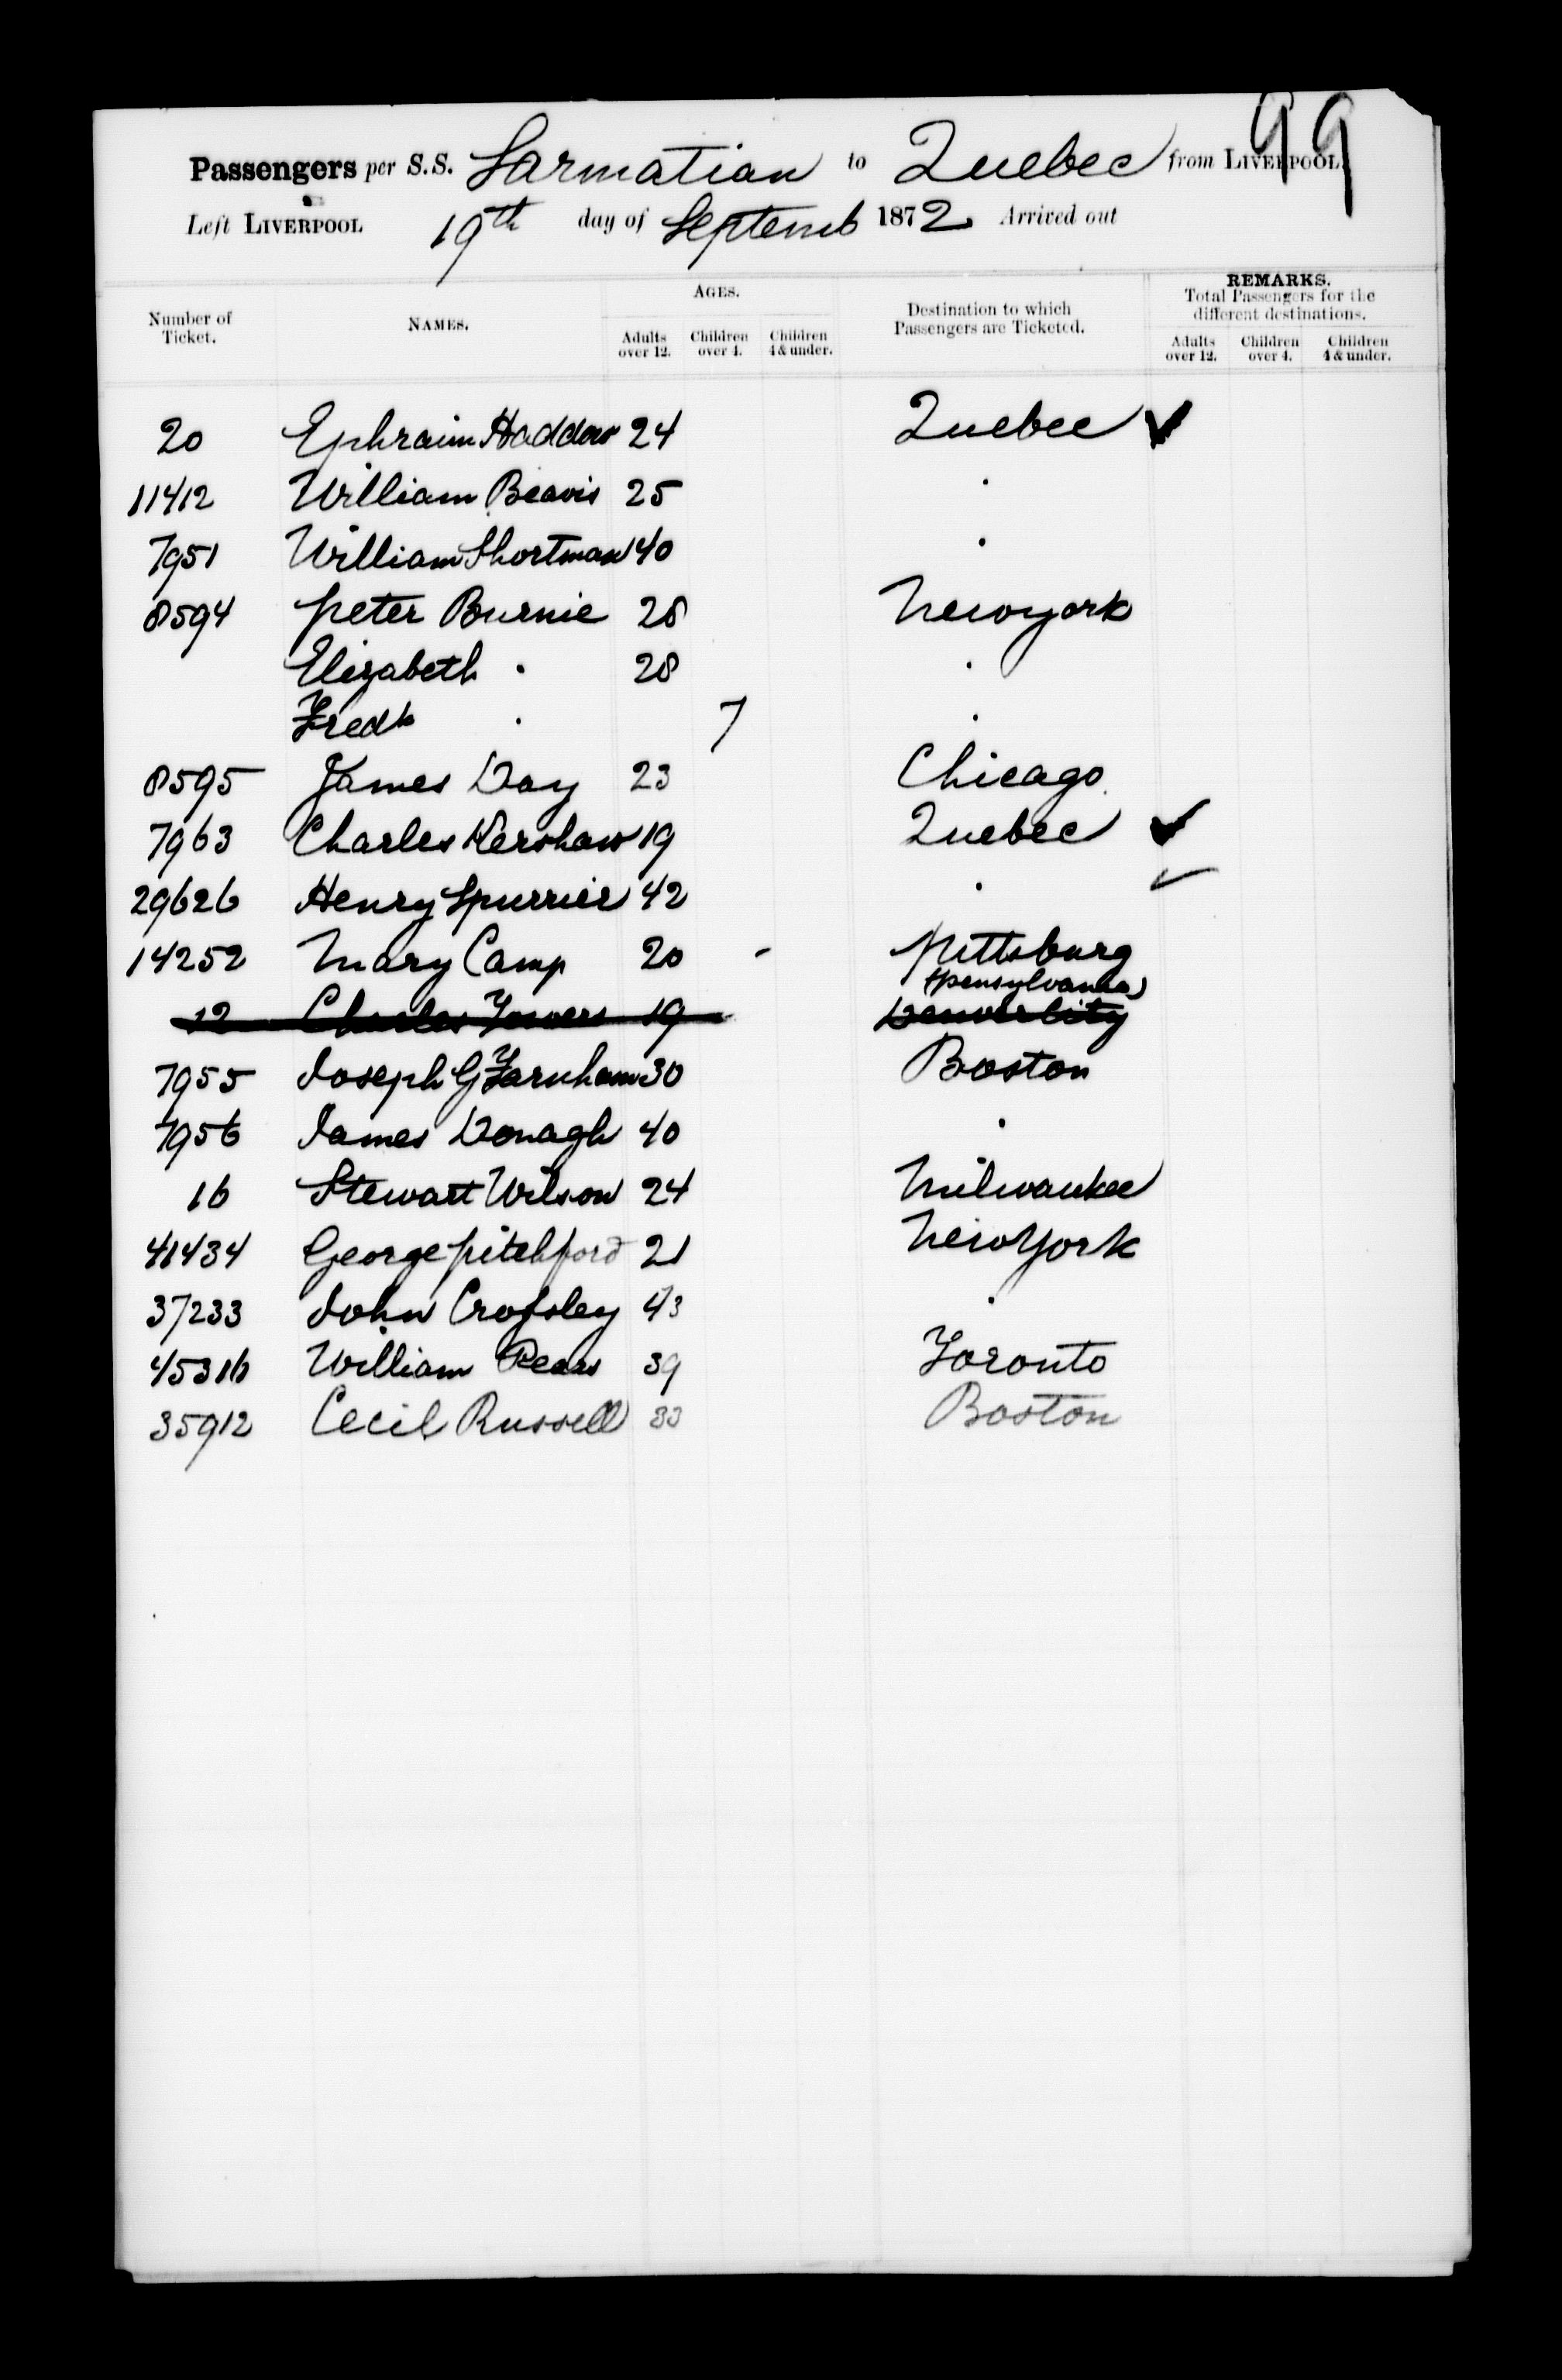 99
Passengers per S.S. Sarmatian to Quebec from LIVERPOOL.
Left LIVERPOOL 19th day of Septemb 1872 Arrived out
Number of Ticket. NAMES. AGES. Adults over 12. Children over 4. Children 4 & under. Destination to which Passengers are Ticketed. REMARKS. Total Passengers for the different destinations. Adults over 12. Children over 4. Children 4 & under.
20 Ephraim Haddow 24 Quebec ✓
11412 William Beavis 25 "
7951 William Shortman 40 "
8594 Peter Burnie 28 Newyork
Elizabeth " 28 "
Fredk " 7 "
8595 James Day 23 Chicago
7963 Charles Kershaw 19 Quebec ✓
29626 Henry Spurrier 42 " ✓
14252 Mary Camp 20 - Pittsburg
(pensylvania)
12 Charles 19 Denver City
7955 Joseph G Farnham 30 Boston
7956 James Donagh 40 "
16 Stewart Wilson 24 Milwaukee
41434 George Pitchford 21 New York
37233 John Crossley 43 "
45316 William Pears 39 Toronto
35912 Cecil Russell 33 Boston